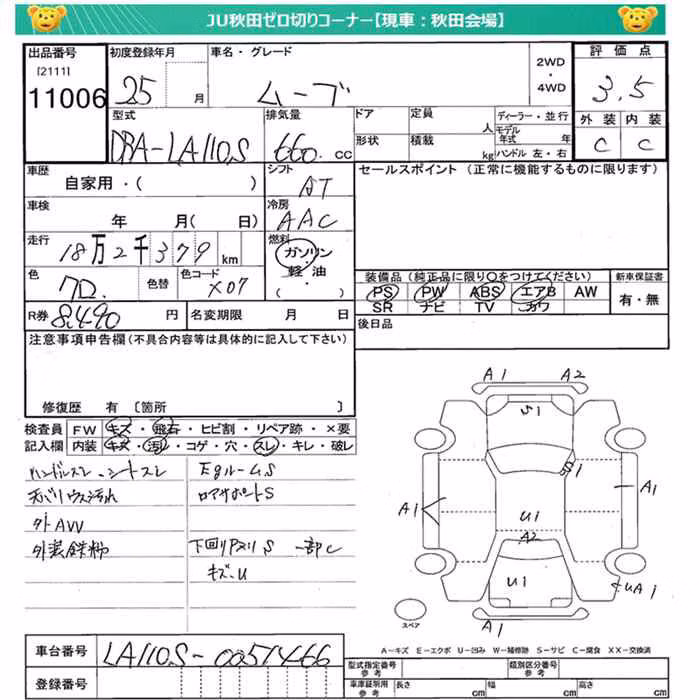 JU秋田ゼロ切りコーナー【現車：秋田会場】
出品番号 初度登録年月 車名・グレード 2WD・4WD 評価点
[2111]
11006 25 月 ムーブ 3.5
型式 排気量 ドア 定員 人 ディーラー・並行 外装 内装
DBA-LA110S 660. cc 形状 積載 kg モデル年式 年 ハンドル 左・右 C C
車歴 シフト セールスポイント (正常に機能するものに限ります)
自家用・( ) AT
車検 冷房
年 月( 日) AAC
走行 燃料
18万2千379 km ガソリン
軽・油
( )
色 色替 色コード 装備品 (純正品に限り○をつけてください) 新車保証書
X07 PS PW ABS エアB AW 有・無
SR ナビ TV カワ
R券 8,490 円 名変期限 月 日 後日品
注意事項申告欄 (不具合内容等は具体的に記入して下さい)
修復歴 有 [箇所 ]
検査員 FW キズ・飛石・ヒビ割・リペア跡・×要
記入欄 内装 キズ・汚れ・コゲ・穴・スレ・キレ・破レ
ハンドルスレ、シートスレ EgルームS
天バリウス汚れ ロアサポートS
外AW
外装鉄粉 下回りアメリS 一部C
キズ、U
A1 A2
S1
S1
A1 A1
U1
A2
U1
UA1
A1
スペア
A－キズ E－エクボ U－凹み W－補修跡 S－サビ C－腐食 XX－交換済
車台番号 LA110S-0057466
登録番号
型式指定番号 参考 類別区分番号 参考
車庫証明用 参考 長さ cm 幅 cm 高さ cm